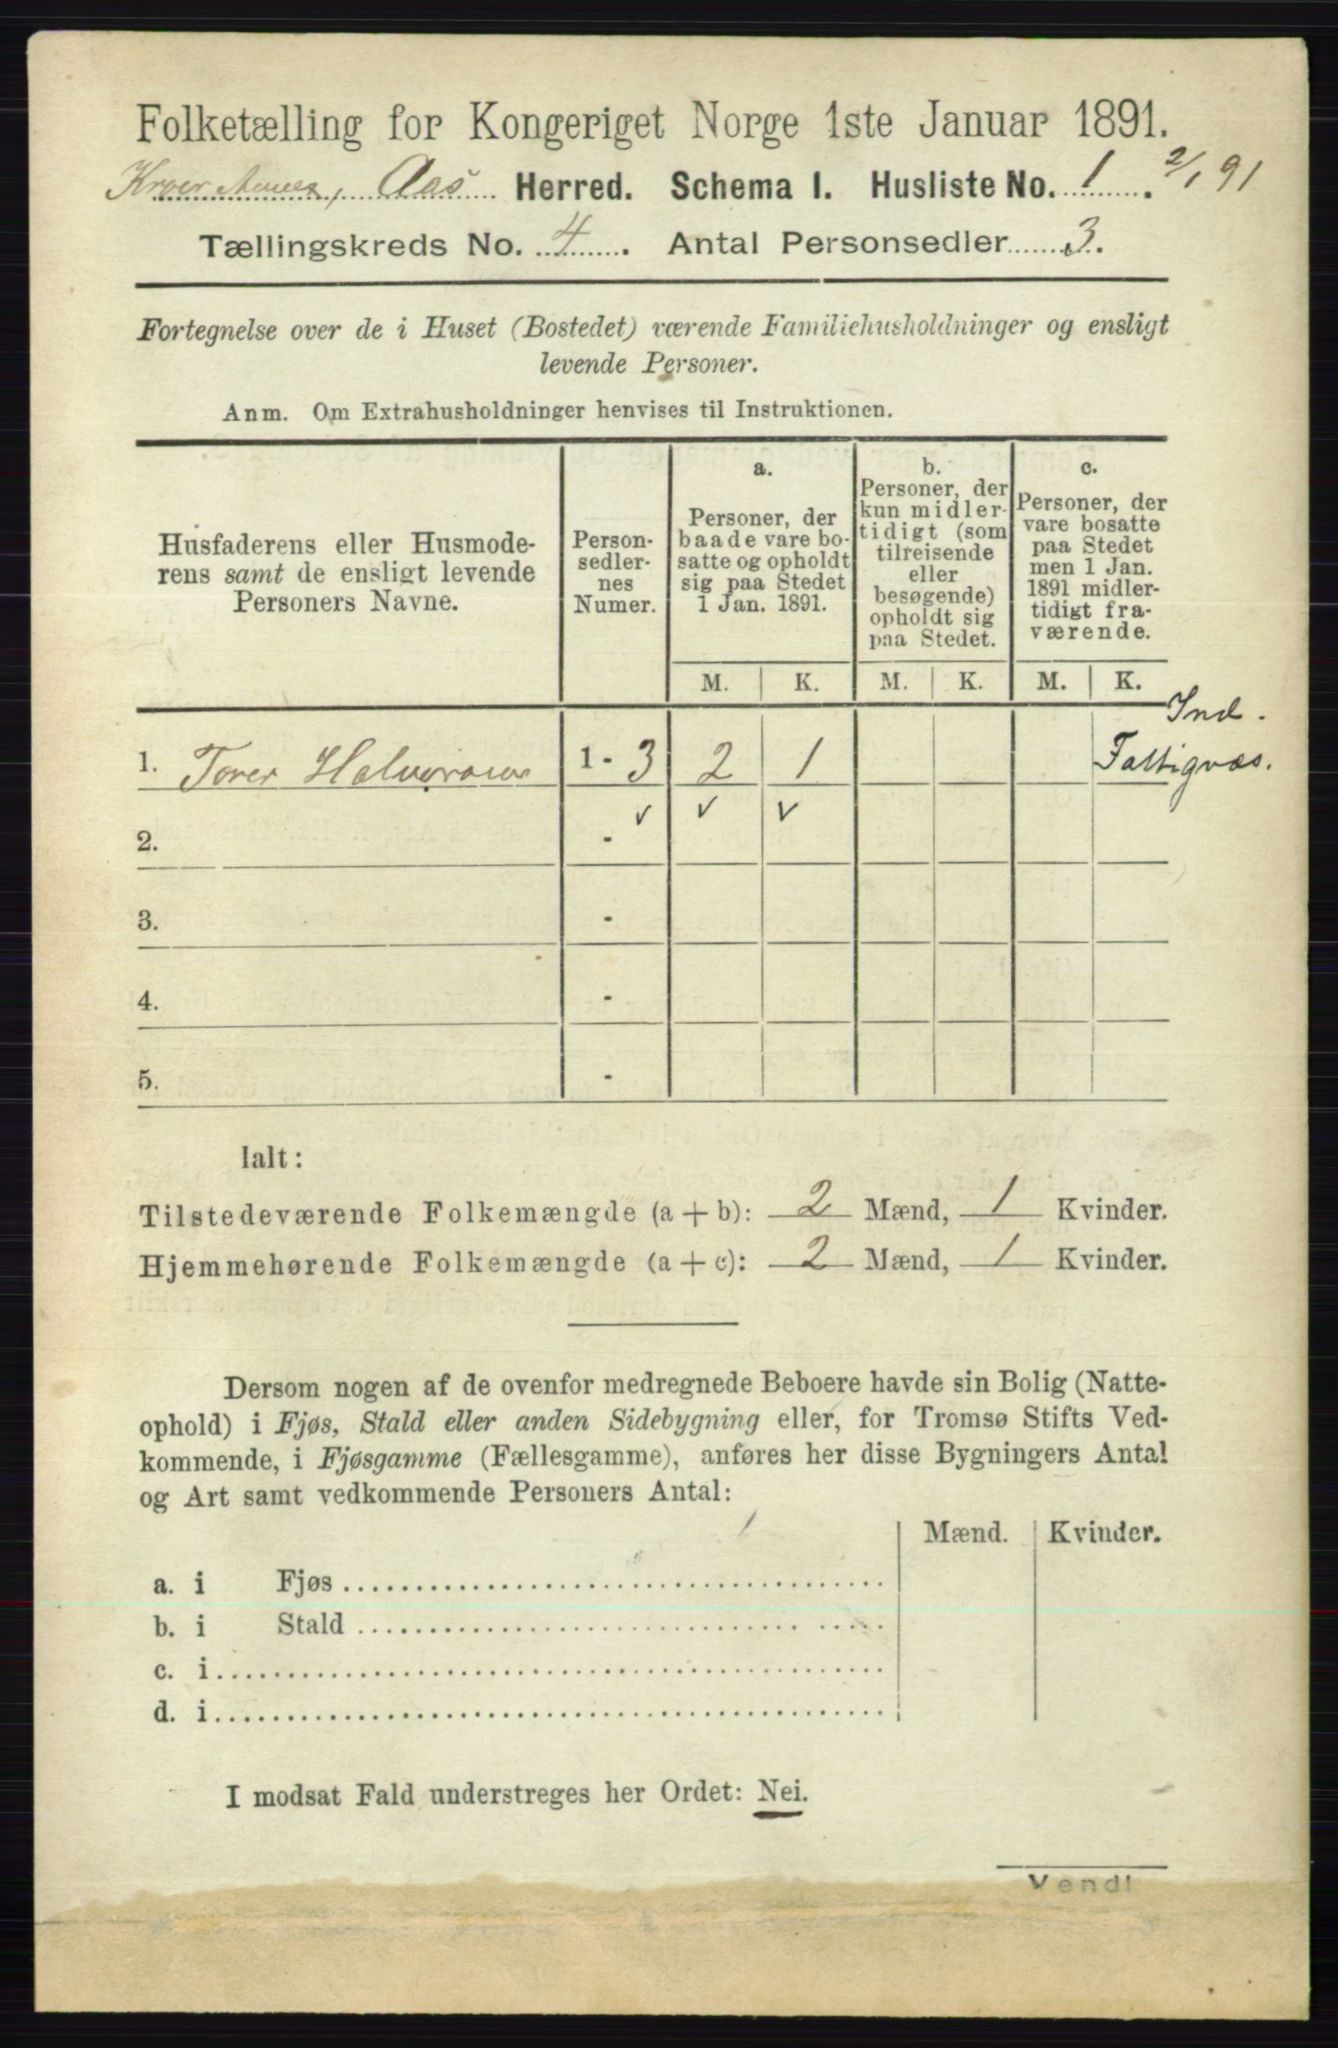 Folketælling for Kongeriget Norge 1ste Januar 1891.
Kroer Annex, Aas Herred. Schema I. Husliste No. 1. 2/1 91
Tællingskreds No. 4. Antal Personsedler 3.
Fortegnelse over de i Huset (Bostedet) værende Familiehusholdninger og ensligt
levende Personer.
Anm. Om Extrahusholdninger henvises til Instruktionen.
Husfaderens eller Husmode-
rens samt de ensligt levende
Personers Navne.
Person-
sedler-
nes
Numer.
a.
Personer, der
baade vare bo-
satte og opholdt
sig paa Stedet
1 Jan. 1891.
b.
Personer, der
kun midler-
tidigt (som
tilreisende
eller
besøgende)
opholdt sig
paa Stedet.
c.
Personer, der
vare bosatte
paa Stedet
men 1 Jan.
1891 midler-
tidigt fra-
værende.
M. K. M. K. M. K.
Ind.
1. Torer Halvorsen 1 - 3 2 1 Fattigvæs.
2. - v v v
3. -
4. -
5. -
Ialt:
Tilstedeværende Folkemængde (a + b): 2 Mænd, 1 Kvinder.
Hjemmehørende Folkemængde (a + c): 2 Mænd, 1 Kvinder.
Dersom nogen af de ovenfor medregnede Beboere havde sin Bolig (Natte-
ophold) i Fjøs, Stald eller anden Sidebygning eller, for Tromsø Stifts Ved-
kommende, i Fjøsgamme (Fællesgamme), anføres her disse Bygningers Antal
og Art samt vedkommende Personers Antal:
Mænd. Kvinder.
a. i Fjøs
b. i Stald
c. i
d. i
I modsat Fald understreges her Ordet: Nei.
Vend!